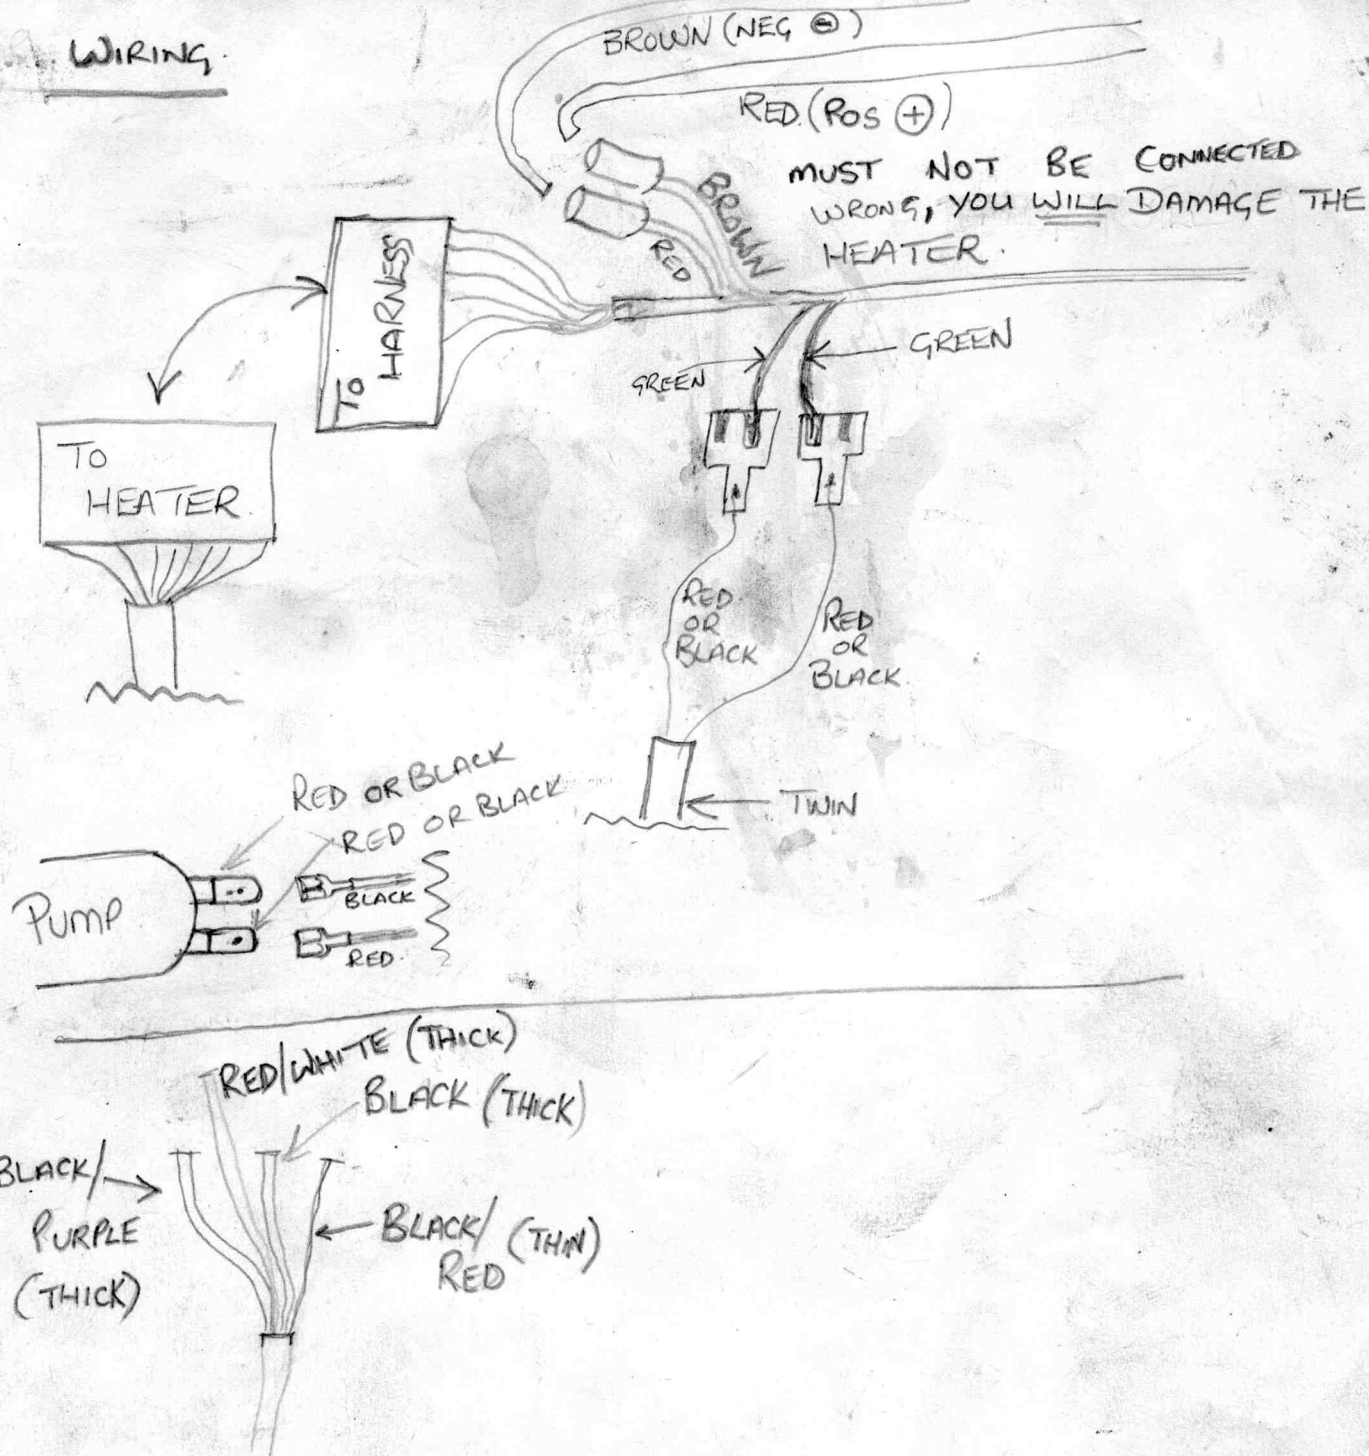 WIRING.
BROWN (NEG ⊖)
RED. (POS ⊕)
MUST NOT BE CONNECTED
WRONG, YOU WILL DAMAGE THE
HEATER.
BROWN
RED
TO
HARNESS
GREEN
GREEN
TO
HEATER.
RED
OR
BLACK
RED
OR
BLACK.
TWIN
RED OR BLACK
RED OR BLACK
PUMP
BLACK
RED.
RED/WHITE (THICK)
BLACK (THICK)
BLACK/
PURPLE
(THICK)
BLACK/ (THIN)
RED